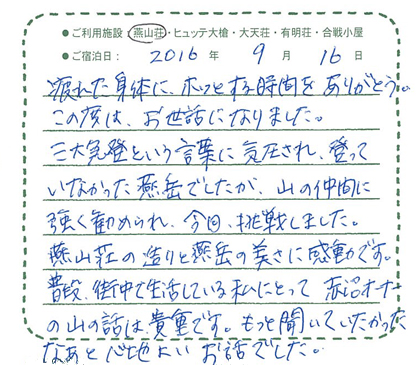 ●ご利用施設：燕山荘・ヒュッテ大槍・大天荘・有明荘・合戦小屋
●ご宿泊日： 2016 年 9 月 16 日
疲れた身体に、ホッとする時間をありがとう。
この度は、お世話になりました。
三大急登という言葉に気圧され、登って
いなかった燕岳でしたが、山の仲間に
強く勧められ、今回、挑戦しました。
燕山荘の造りと燕岳の美さに感動です。
普段、街中で生活している私にとって 赤沼オーナー
の山の話は貴重です。もっと聞いていたかった
なあと心地よいお話でした。